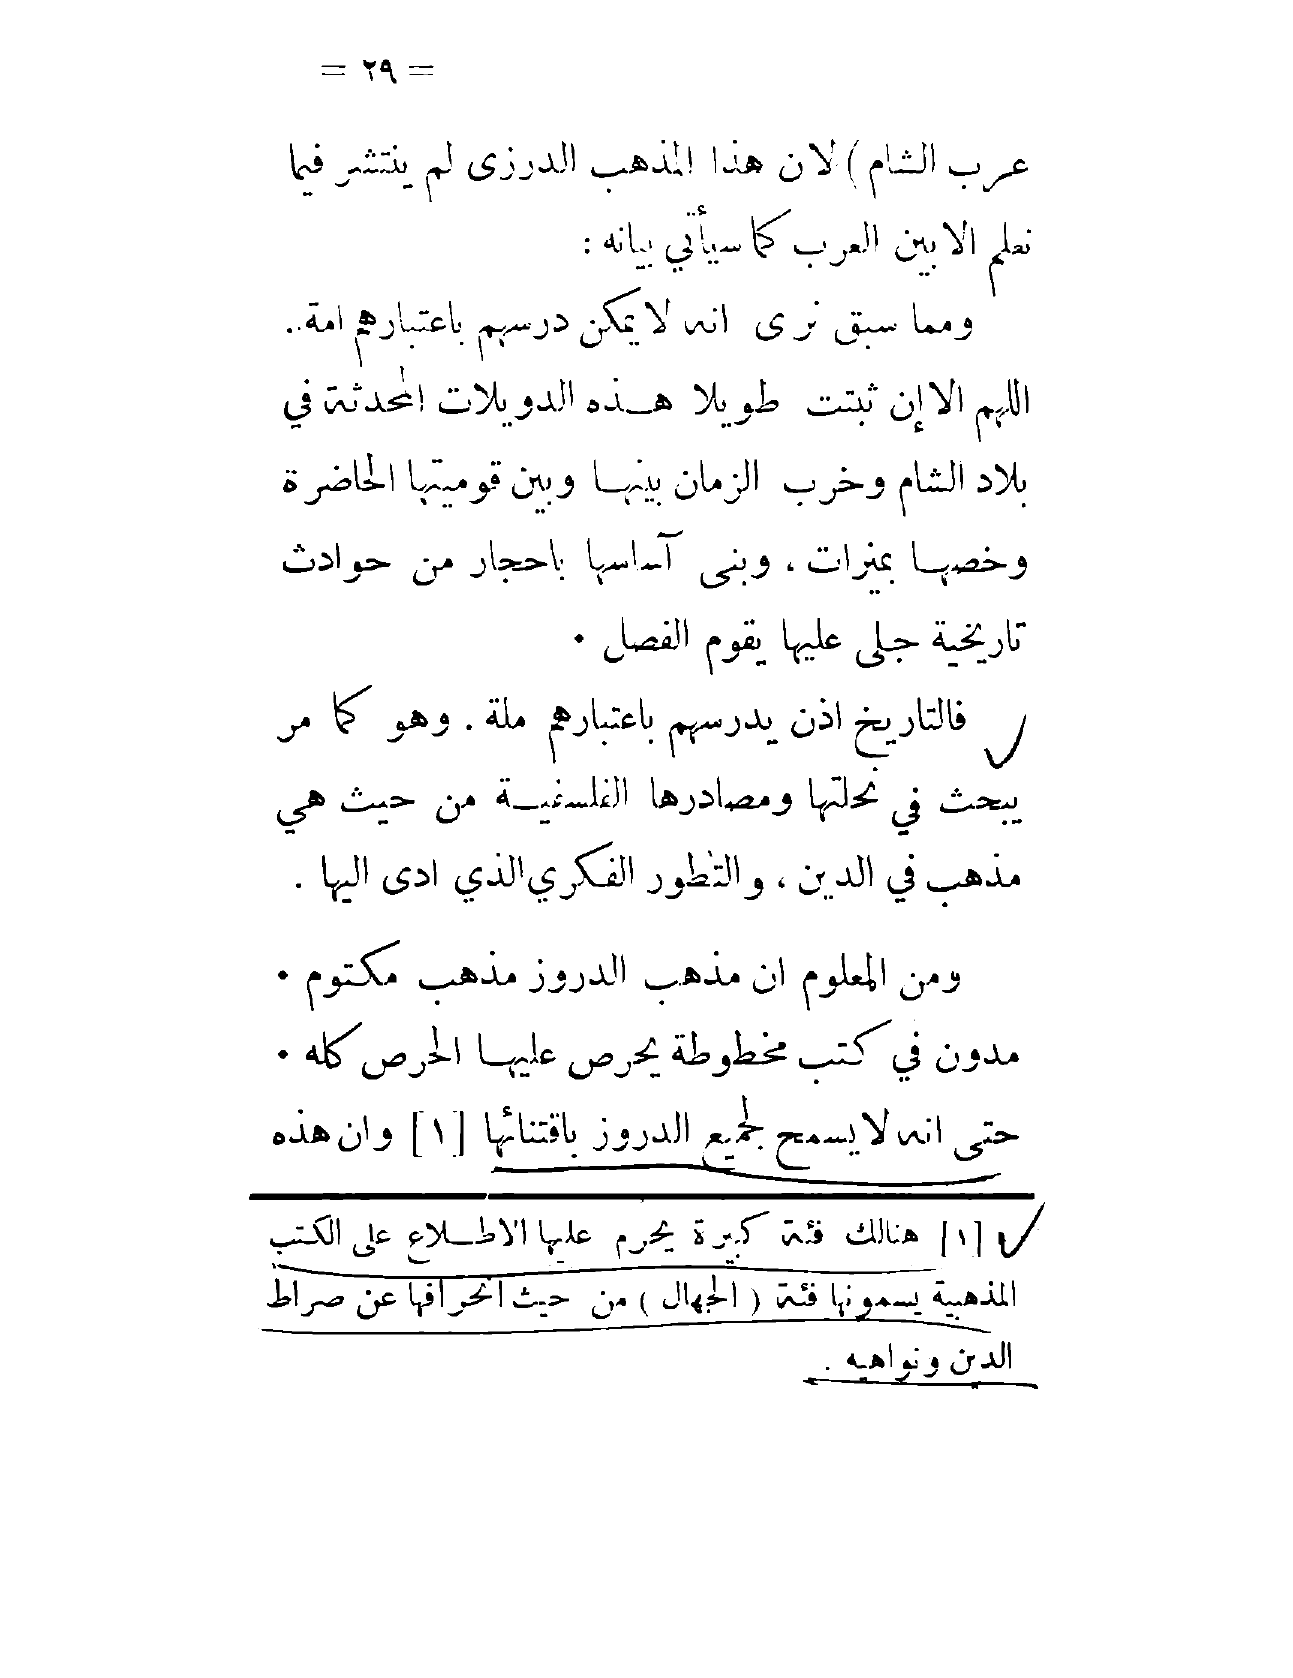 = ٢٩ =
عرب الشام) لان هذا المذهب الدرزى لم ينتشر فيما
نعلم الا بين العرب كما سيأتي بيانه :
ومما سبق نرى انه لا يمكن درسهم باعتبارهم امة..
اللهم الا إن ثبتت طويلا هذه الدويلات المحدثة في
بلاد الشام وخرب الزمان بينها وبين قوميتها الحاضرة
وخصها بميزات ، وبنى آساسها باحجار من حوادث
تاريخية جلى عليها يقوم الفصل ٠
فالتاريخ اذن يدرسهم باعتبارهم ملة . وهو كما مر
يبحث في نحلتها ومصادرها الفلسفية من حيث هي
مذهب في الدين ، والتطور الفكري الذي ادى اليها .
ومن المعلوم ان مذهب الدروز مذهب مكتوم ٠
مدون في كتب مخطوطة يحرص عليها الحرص كله ٠
حتى انه لا يسمح لجميع الدروز باقتنائها [١] وان هذه
[١] هنالك فئة كبيرة يحرم عليها الاطلاع على الكتب
المذهبية يسمونها فئة ( الجهال ) من حيث انحرافها عن صراط
الدين ونواهيه .